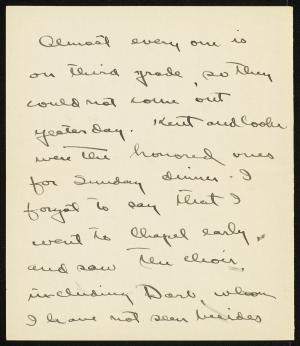 Almost every one is
on third grade, so they
could not come out
yesterday. Kent and Cooke
were the honored ones
for Sunday dinner. I
forgot to say that I
went to Chapel early,
and saw the choir,
including Dart, whom
I have not seen besides